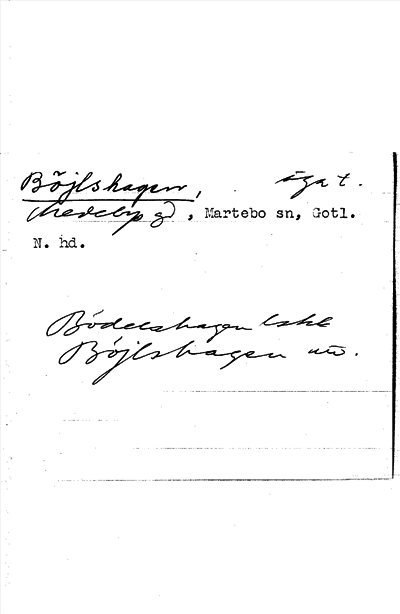 Böjlshagen, ägat.
Medeby gd, Martebo sn, Gotl.
N. hd.
Bödelshagen lskb
Böjlshagen